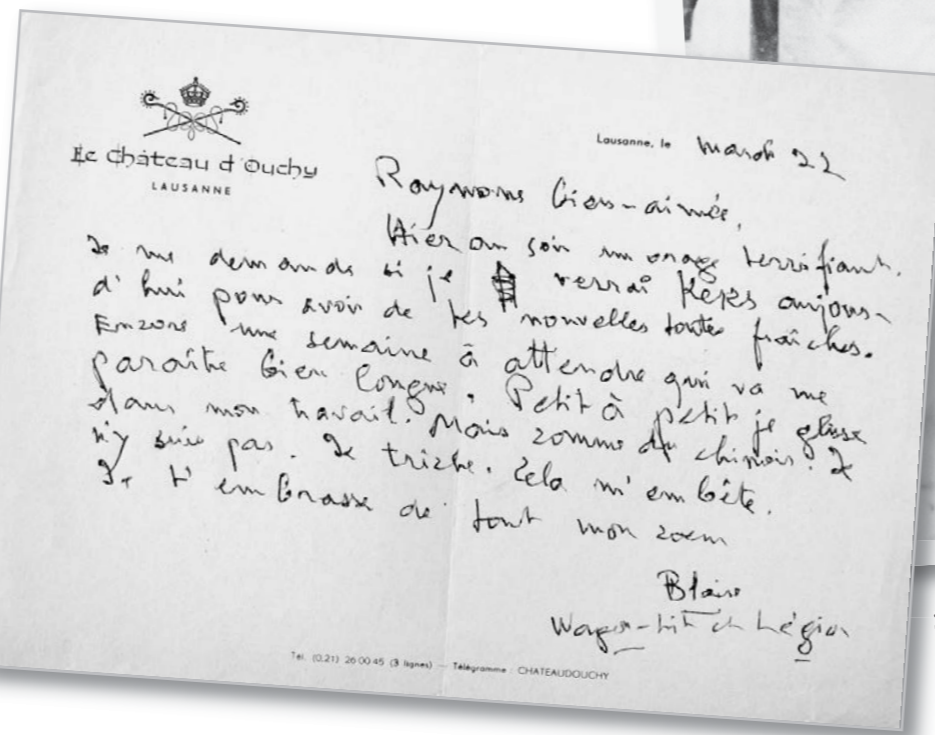 Le Château d'Ouchy
LAUSANNE
Lausanne, le mardi 22
Raymone bien-aimée,
Hier au soir un orage terrifiant.
Je me demande si je verrai Keps aujour-
d'hui pour avoir de tes nouvelles toutes fraîches.
Encore une semaine à attendre qui va me
paraître bien longue. Petit à petit je glisse
dans mon travail. Mais comme du chinois. Je
n'y suis pas. Je triche. Cela m'embête.
Je t'embrasse de tout mon coeur
Blaise
Wagon-lit et Légion
Tél. (0.21) 26 00 45 (3 lignes) — Télégramme : CHATEAUDOUCHY